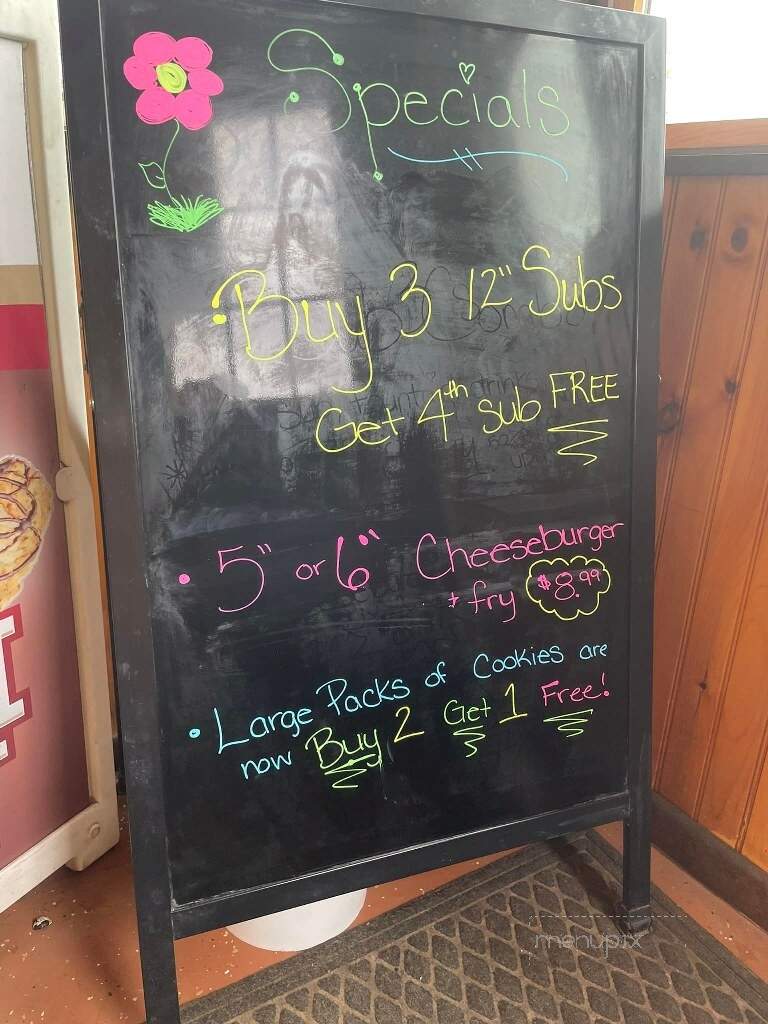 Specials
• Buy 3 12" Subs
Get 4th sub FREE
• 5" or 6" Cheeseburger
+ fry $8.99
• Large Packs of Cookies are
now Buy 2 Get 1 Free!
menupix